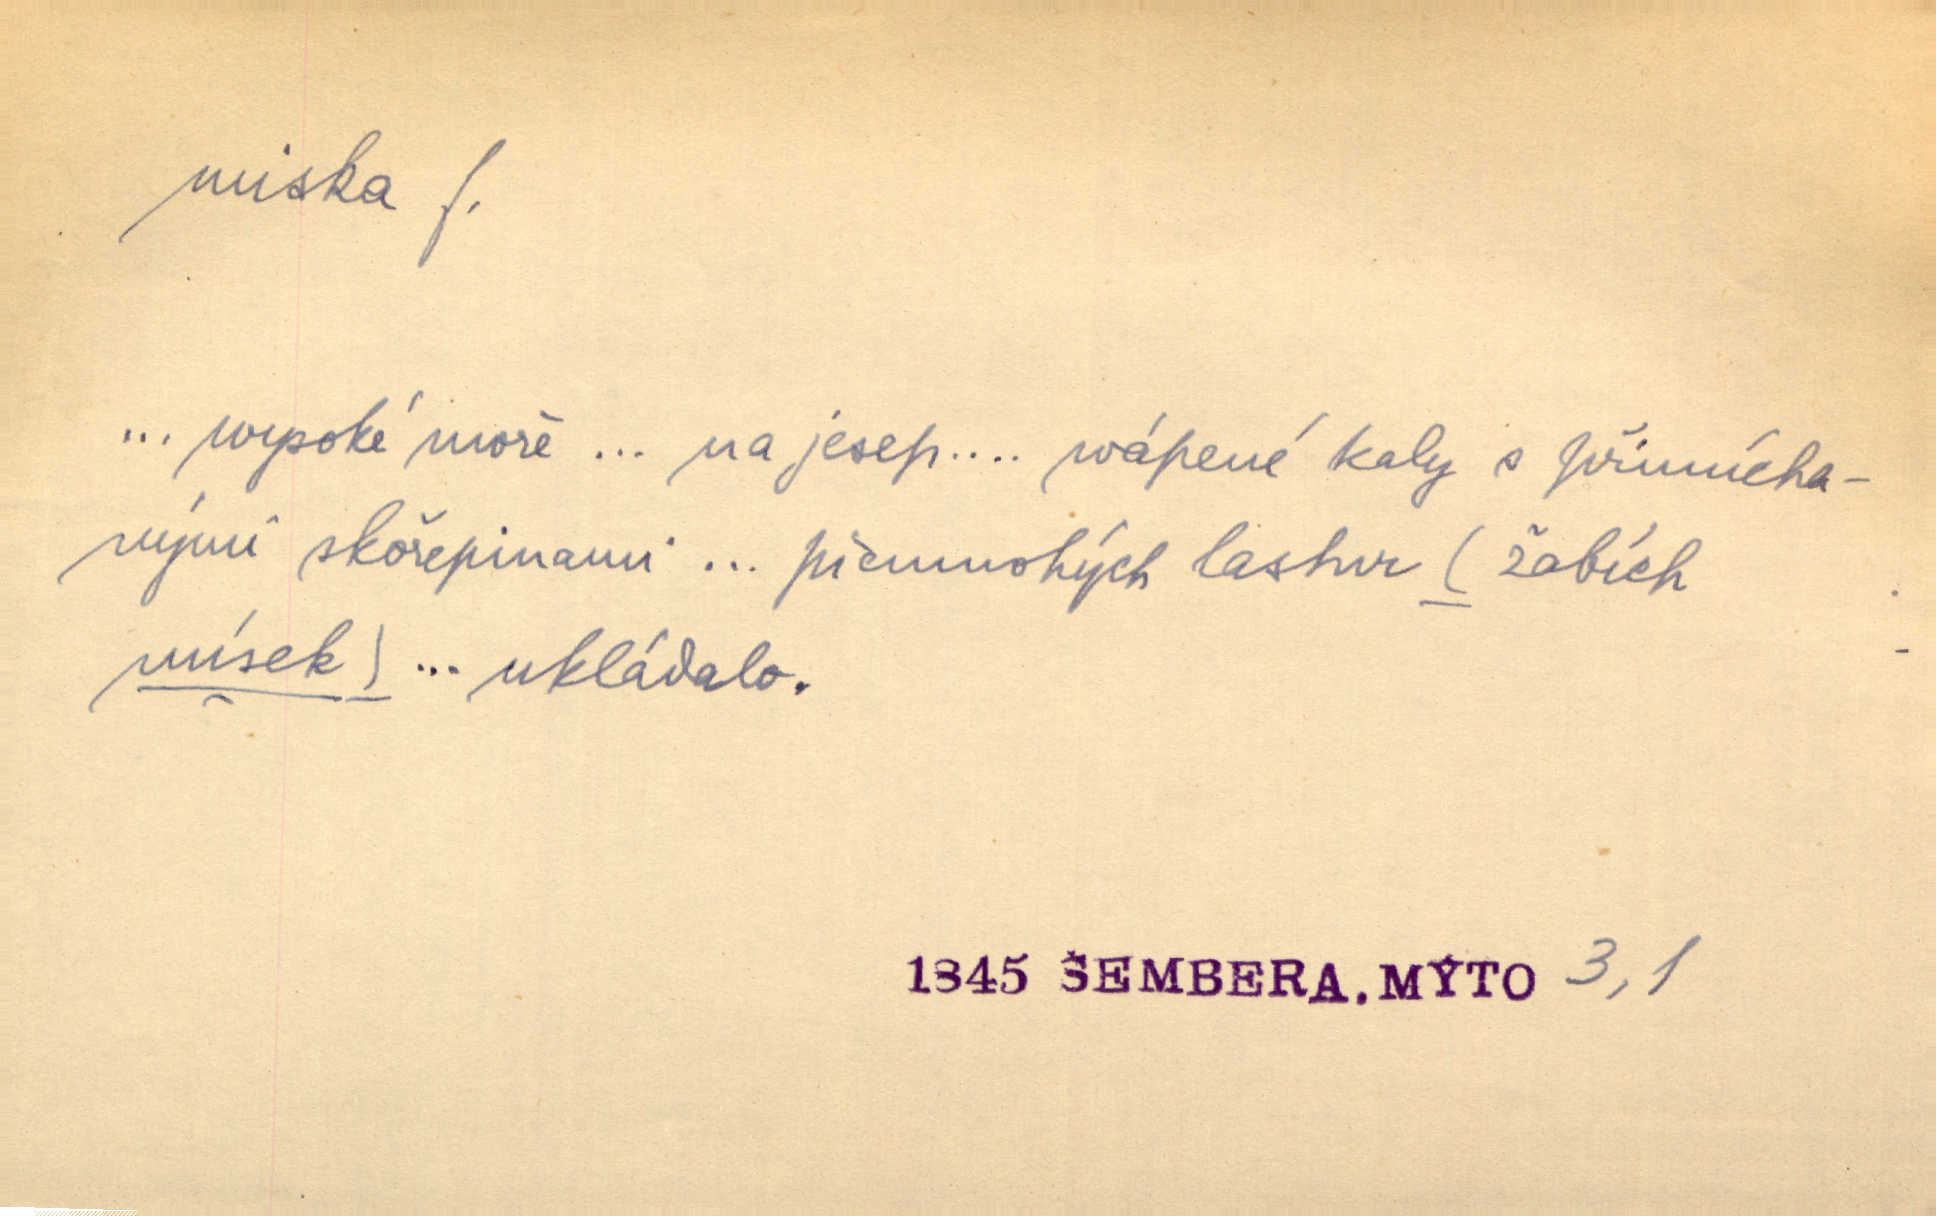 miska f.
... wysoké moře ... na jesep.... wápené kaly s přimícha-
nými skořepinami ... přemnohých lastur ( žabích
mísek ) ... ukládalo.
1845 ŠEMBERA, MÝTO 3,1